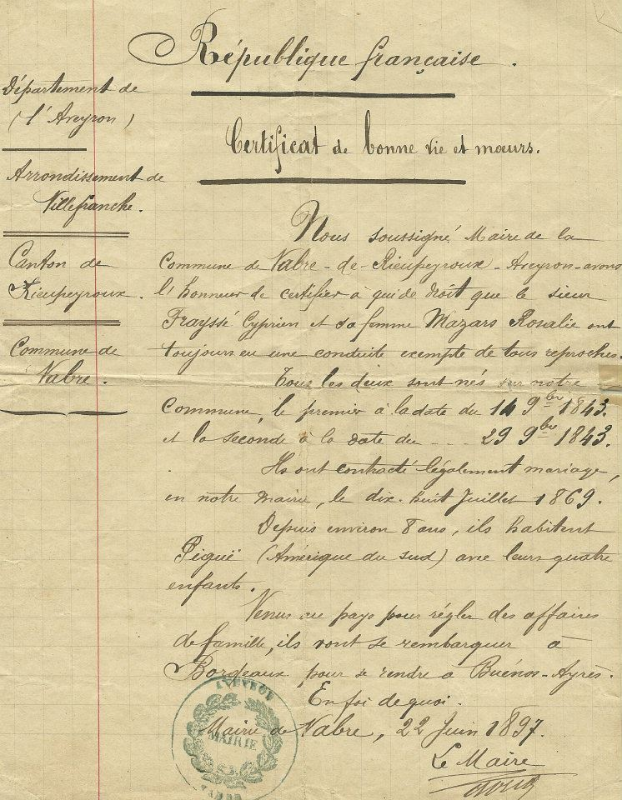 République française.
Département de
(l'Aveyron)
Certificat de bonne vie et mœurs.
Arrondissement de
Villefranche.
Canton de
Rieupeyroux.
Commune de
Vabre.
Nous soussigné Maire de la
Commune de Vabre-de-Rieupeyroux-Aveyron-avons
l'honneur de certifier à qui de droit que le sieur
Frayssé Cyprien et sa femme Mazars Rosalie ont
toujours eu une conduite exempte de tous reproches.
Tous les deux sont nés sur notre
Commune, le premier à la date du 14 9bre 1843.
et la seconde à la date du ... 29 9bre 1843.
Ils ont contracté légalement mariage,
en notre Mairie, le dix-huit Juillet 1869.
Depuis environ 8 ans, ils habitent
Pigué (Amérique du sud) avec leurs quatre
enfants.
Venus au pays pour régler des affaires
de famille, ils vont se rembarquer à
Bordeaux pour se rendre à Buénos-Ayrès.
En foi de quoi.
Mairie de Vabre, 22 Juin 1897.
Le Maire
MAIRIE